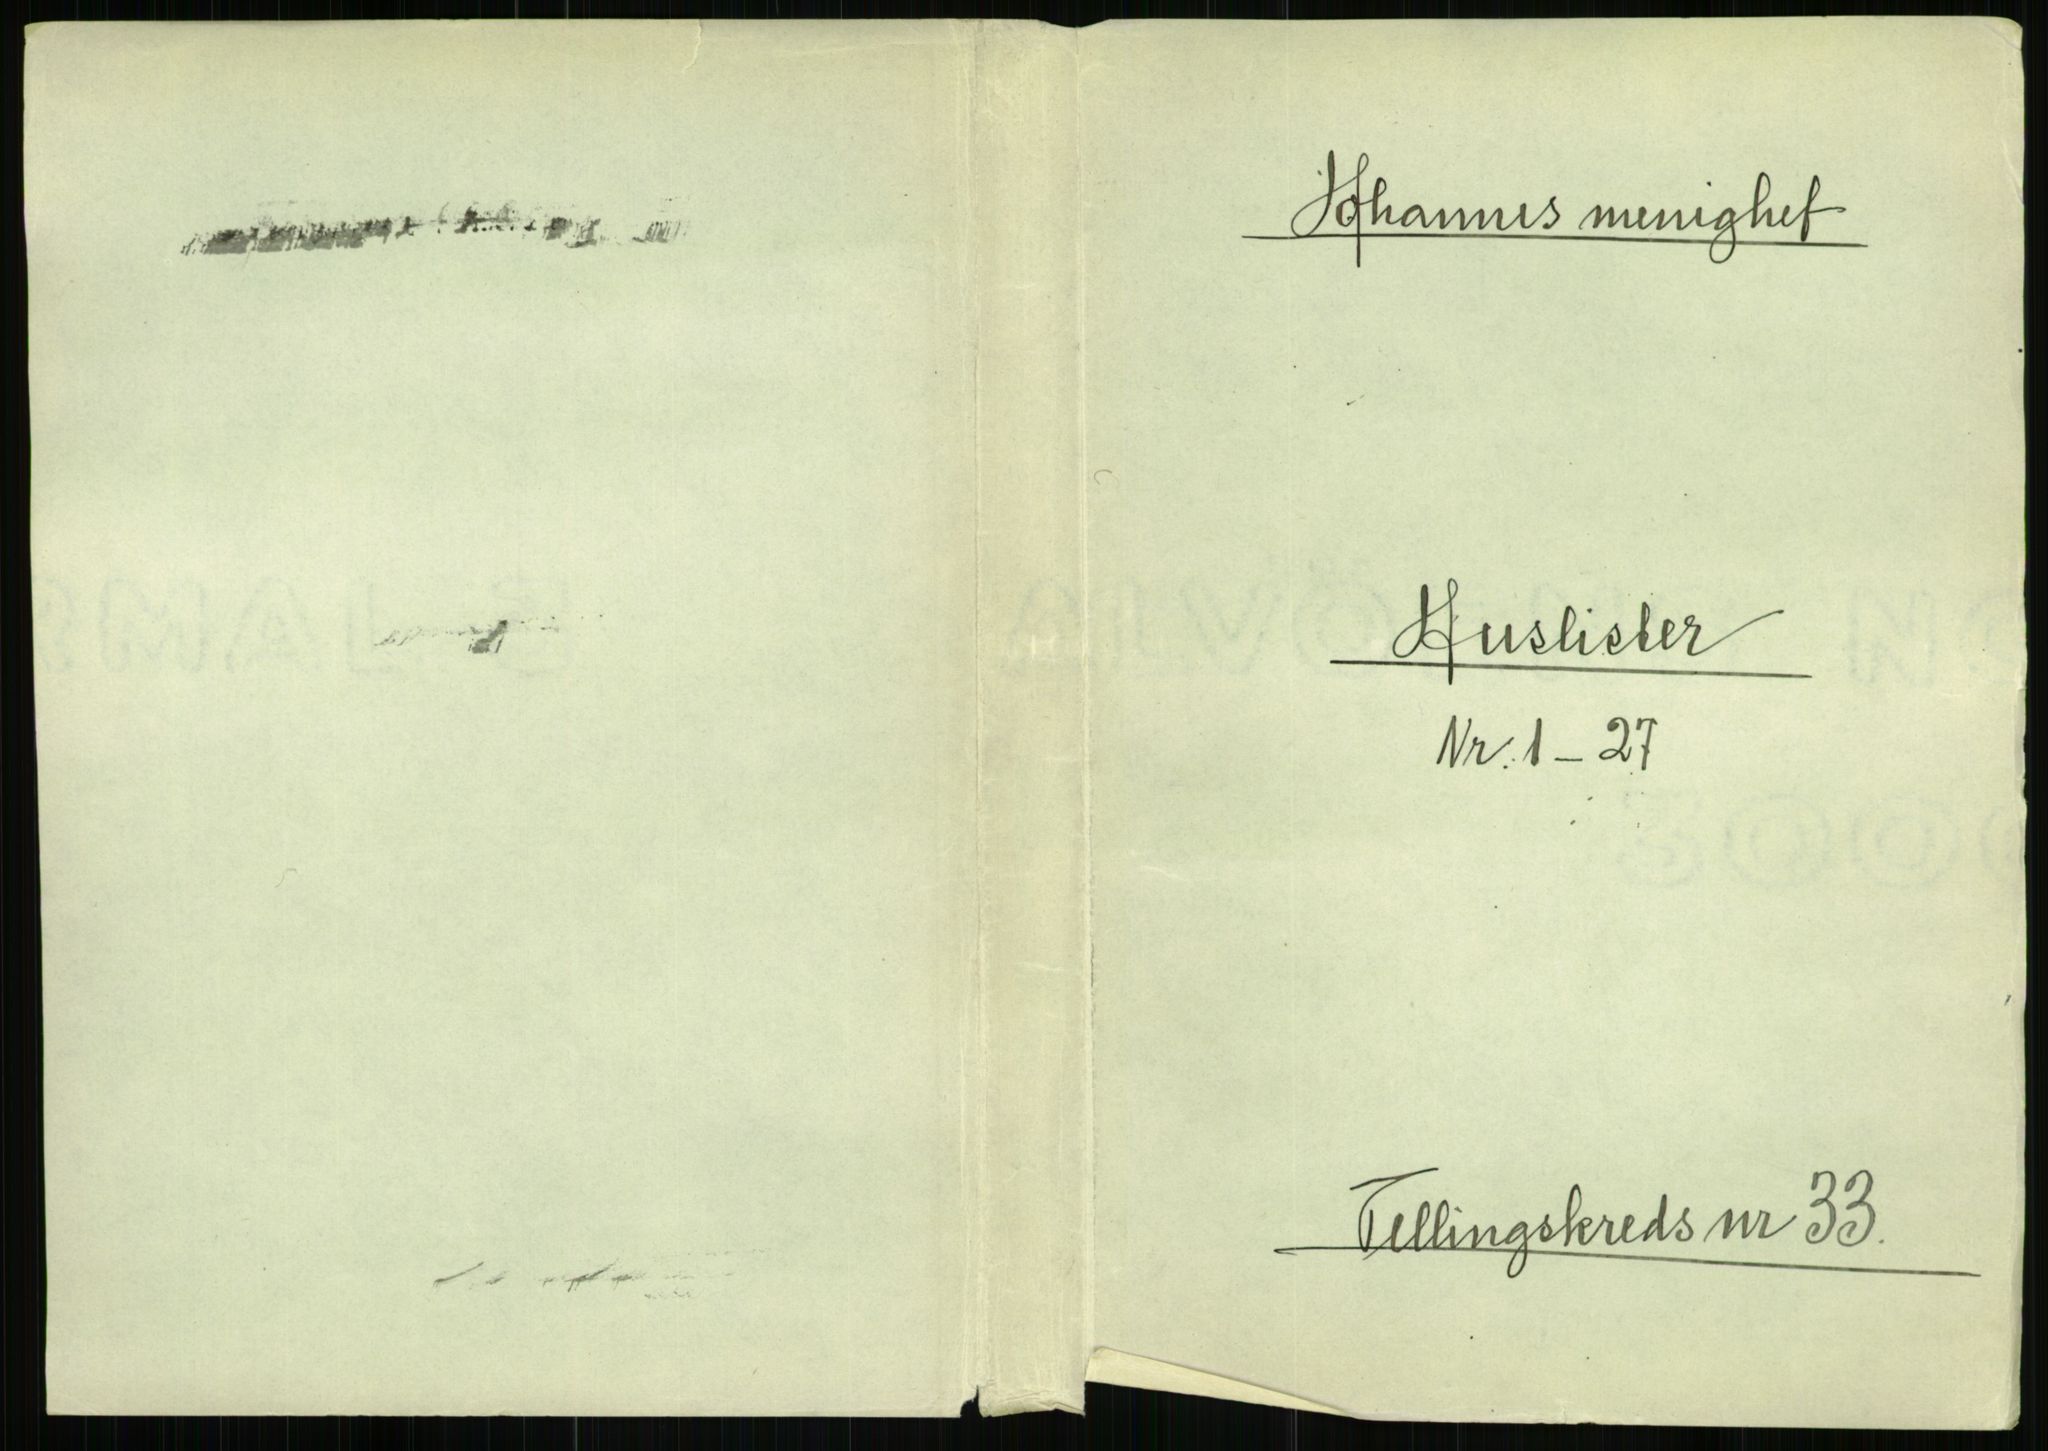 Johannes menighet
Huslister
Nr. 1 – 27
Tellingskreds nr 33.